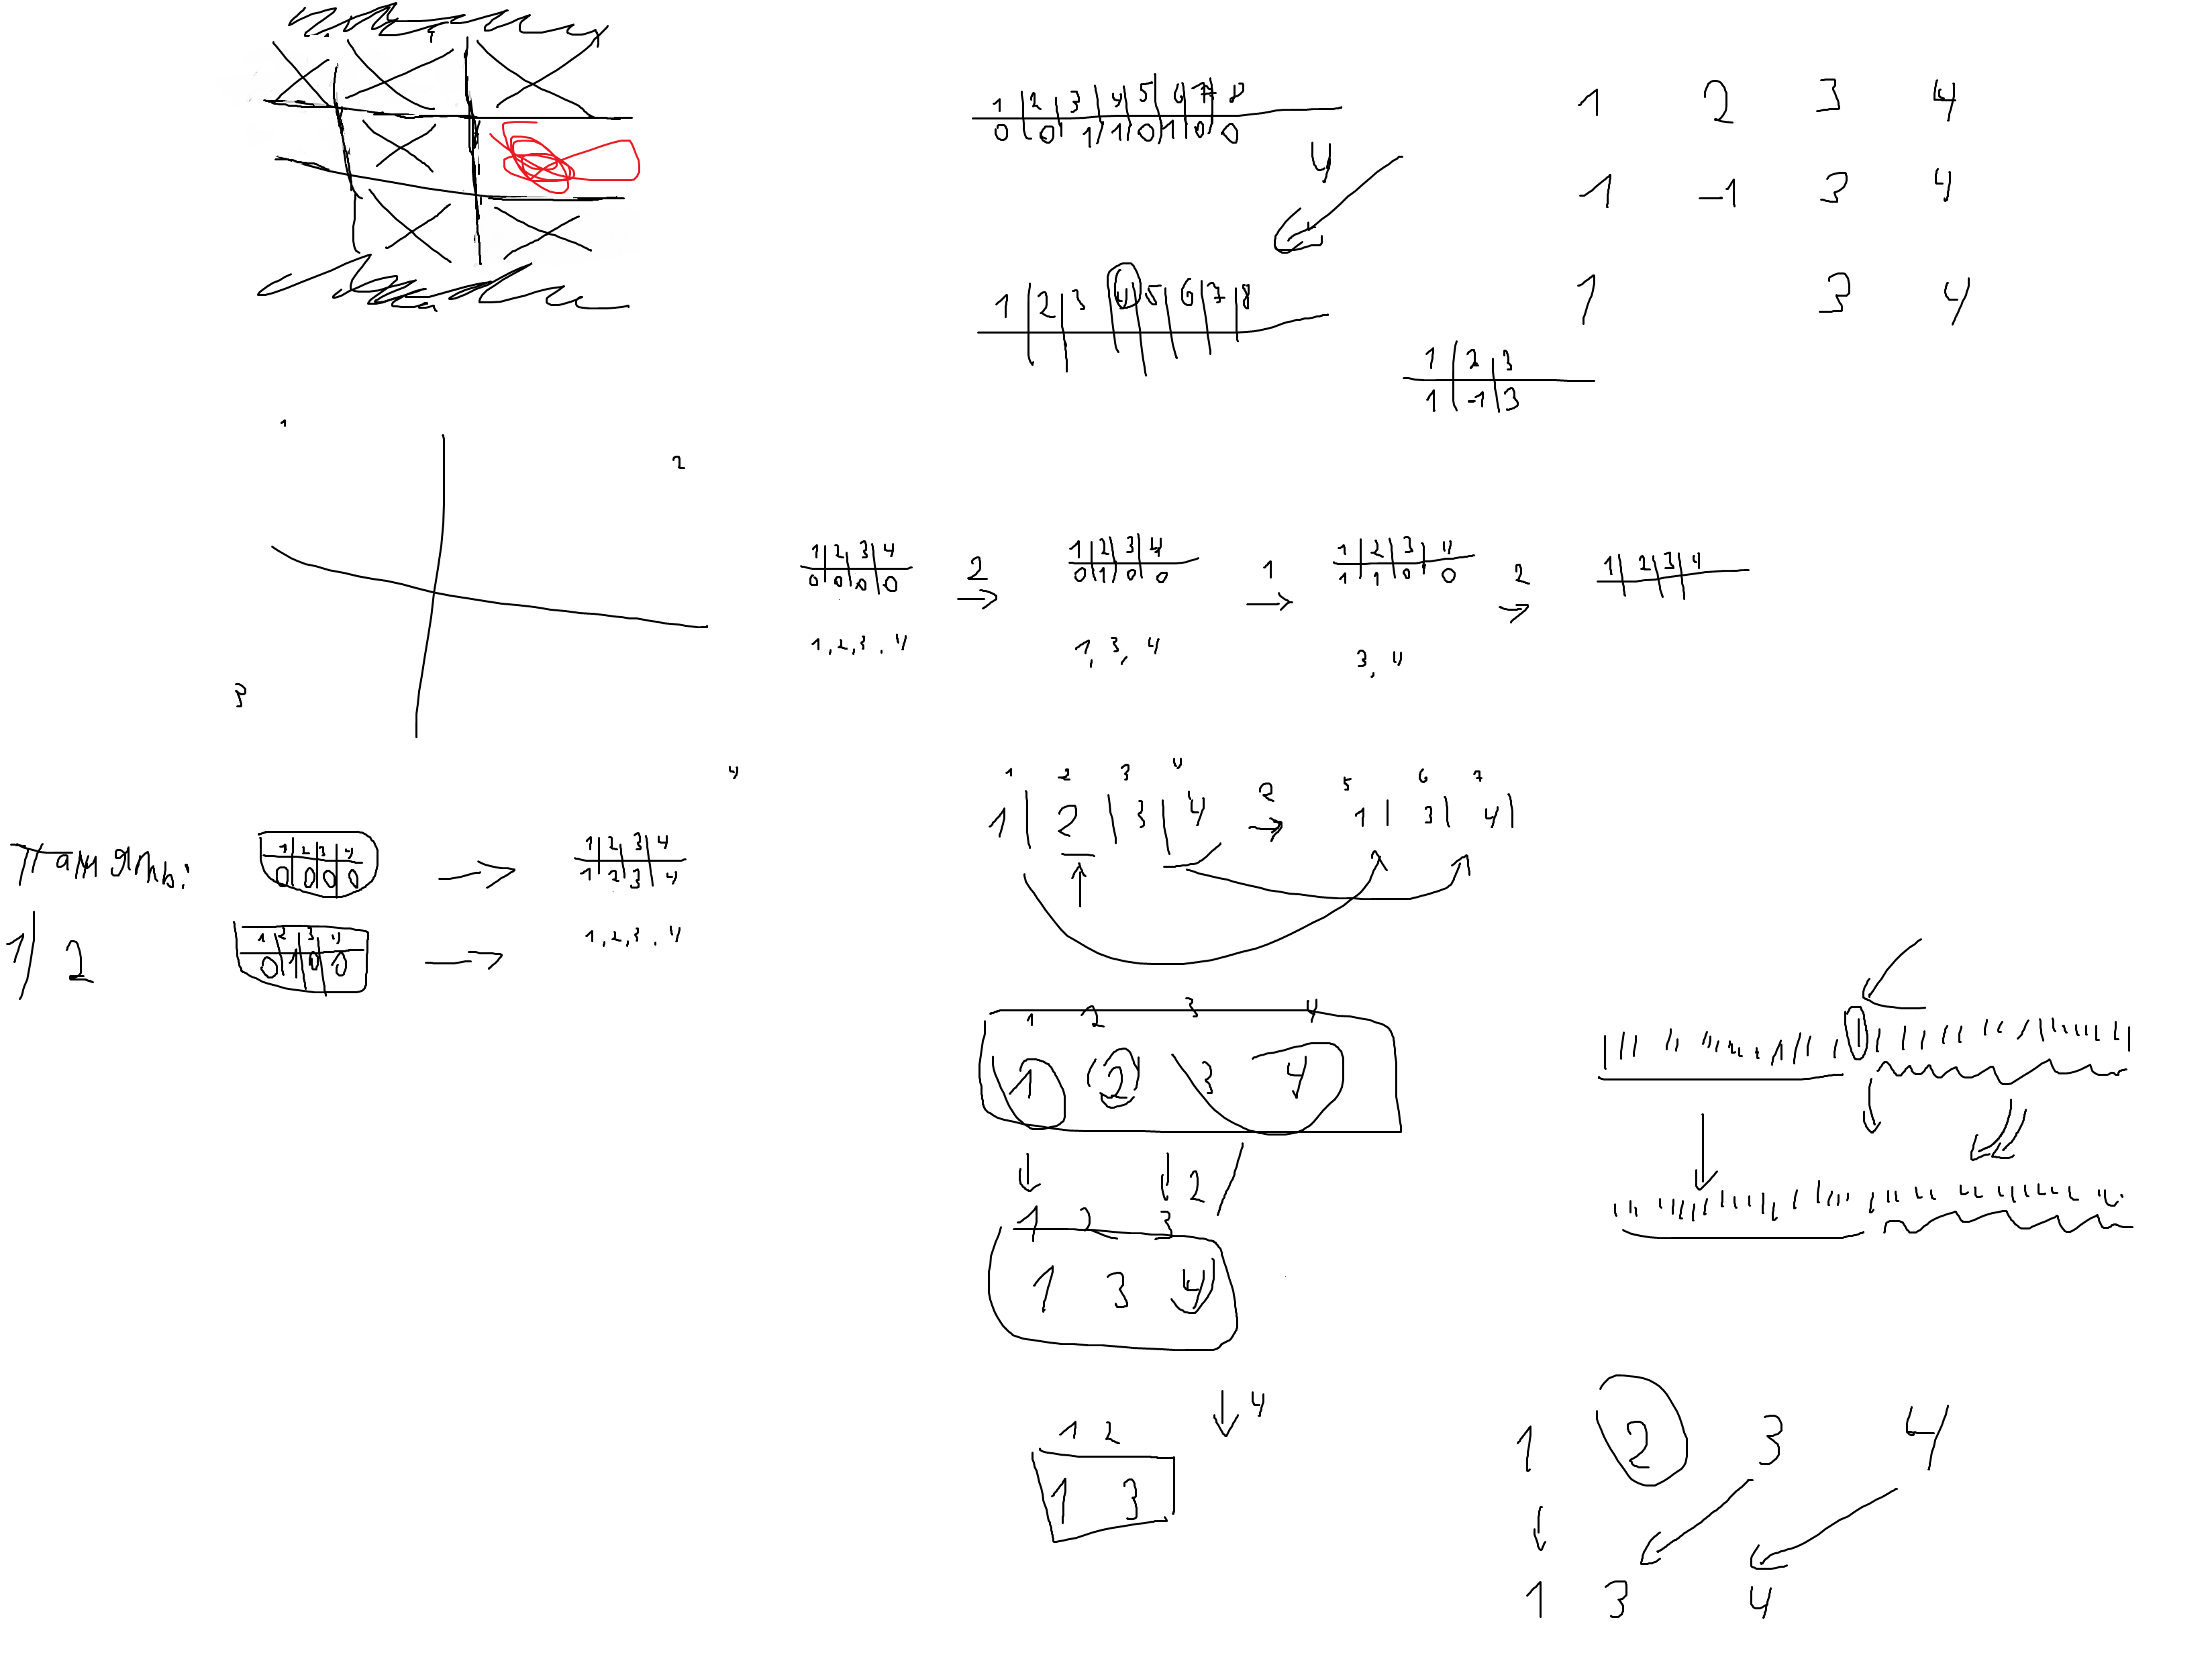 1 2 3 4 5 6 7 8
0 0 1 1 0 1 0 0
4
1 2 3 4 5 6 7 8
1 2 3 4
1 -1 3 4
1 3 4
1 2 3
1 -1 3
1
2
3
4
1 2 3 4
0 0 0 0
1, 2, 3, 4
2
1 2 3 4
0 1 0 0
1, 3, 4
1
1 2 3 4
1 1 0 0
3, 4
2
1 2 3 4
Память:
1 2 3 4
0 0 0 0
1 2 3 4
1 2 3 4
1 2
1 2 3 4
0 1 0 0
1, 2, 3, 4
1 2 3 4
1 2 3 4
2
5 6 7
1 3 4
1 2 3 4
1 2 3 4
2
1 2 3
1 3 4
4
1 2
1 3
1 2 3 4
1 3 4